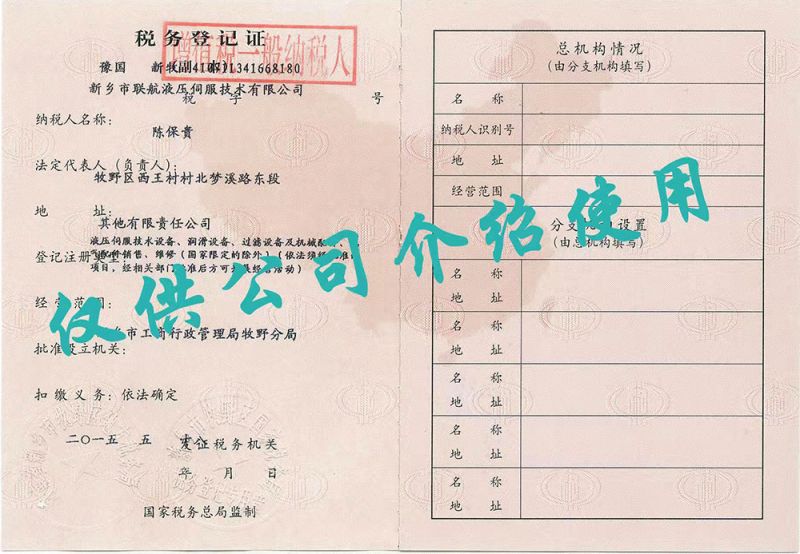 税务登记证
增值税一般纳税人
豫国 新牧(副本)410711341668180
新乡市联航液压伺服技术有限公司
税 字 号
纳税人名称：
陈保贵
法定代表人（负责人）：
牧野区西王村村北梦溪路东段
地 址：
其他有限责任公司
液压伺服技术设备、润滑设备、过滤设备及机械配件、
销售、维修（国家限定的除外）（依法须经批准
登记注册类型：
项目，经相关部门批准后方可开展经营活动）
经营范围：
乡市工商行政管理局牧野分局
批准设立机关：
扣缴义务：依法确定
二〇一五 五
发证税务机关
年 月 日
国家税务总局监制
总机构情况
（由分支机构填写）
名 称
纳税人识别号
地 址
经营范围
分支机构设置
（由总机构填写）
名 称
地 址
名 称
地 址
名 称
地 址
名 称
地 址
名 称
地 址
仅供公司介绍使用